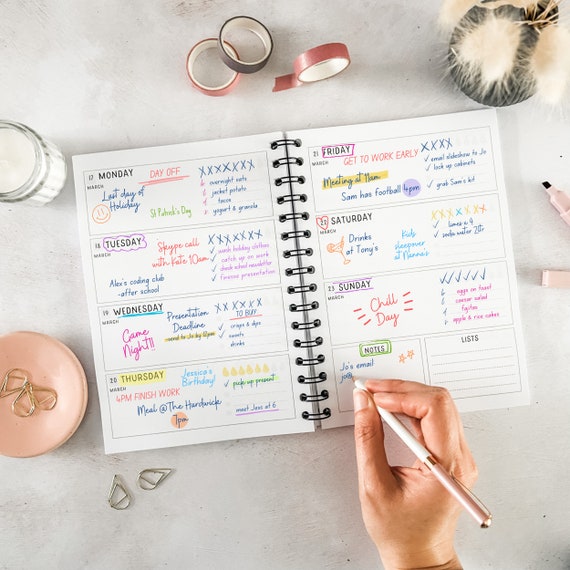 17 MONDAY
MARCH
DAY OFF
Last day of
Holiday
St Patrick's Day
XXXXXX
b overnight oats
l jacket potato
d tacos
s yogurt & granola
18 TUESDAY
MARCH
Skype call
with Kate 10am
Alex's coding club
-after school
XXXXXX
✓ wash holiday clothes
✓ catch up on work
✓ check school newsletter
✓ finesse presentation
19 WEDNESDAY
MARCH
Game
Night!!
Presentation
Deadline
send to Jo by 12pm
XXXX X
TO BUY
✓ crisps & dips
✓ sweets
drinks
20 THURSDAY
MARCH
Jessica's
Birthday!
4PM FINISH WORK
Meal @ The Hardwick
7pm
✓ pick up present
meet Jess at 6
21 FRIDAY
MARCH
GET TO WORK EARLY
Meeting at 11am
Sam has football 4pm
XXXXX
✓ email slideshow to Jo
✓ lock up cabinets
✓ grab Sam's kit
22 SATURDAY
MARCH
Drinks
at Tony's
Kids
sleepover
at Nannas
XXXXXX
✓ limes x 4
✓ soda water 2ltr
23 SUNDAY
MARCH
Chill
Day
✓✓✓✓✓
b eggs on toast
l caesar salad
d fajitas
s apple & rice cakes
NOTES
Jo's email
LISTS